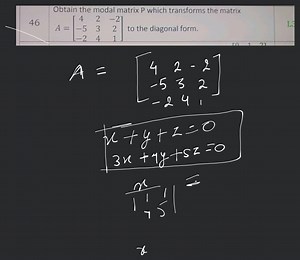 Obtain the modal matrix P which transforms the matrix
46
A = [4 2 -2
-5 3 2
-2 4 1] to the diagonal form.
A = [4 2 -2
-5 3 2
-2 4 1]
x + y + z = 0
3x + 4y + 5z = 0
x
=
1 1
4 5
x